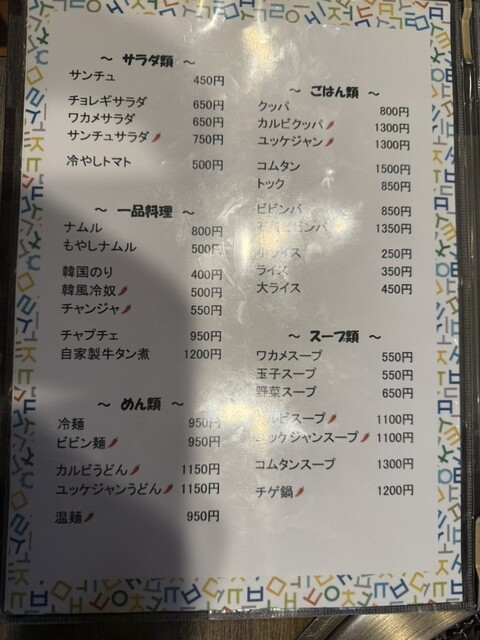 ～ サラダ類 ～
サンチュ 450円
チョレギサラダ 650円
ワカメサラダ 650円
サンチュサラダ 750円
冷やしトマト 500円
～ 一品料理 ～
ナムル 800円
もやしナムル 500円
韓国のり 400円
韓風冷奴 500円
チャンジャ 550円
チャプチェ 950円
自家製牛タン煮 1200円
～ めん類 ～
冷麺 950円
ビビン麺 950円
カルビうどん 1150円
ユッケジャンうどん 1150円
温麺 950円
～ ごはん類 ～
クッパ 800円
カルビクッパ 1300円
ユッケジャン 1300円
コムタン 1500円
トック 850円
ビビンバ 850円
ビビンバ 1350円
小ライス 250円
ライス 350円
大ライス 450円
～ スープ類 ～
ワカメスープ 550円
玉子スープ 550円
野菜スープ 650円
カルビスープ 1100円
ユッケジャンスープ 1100円
コムタンスープ 1300円
チゲ鍋 1200円